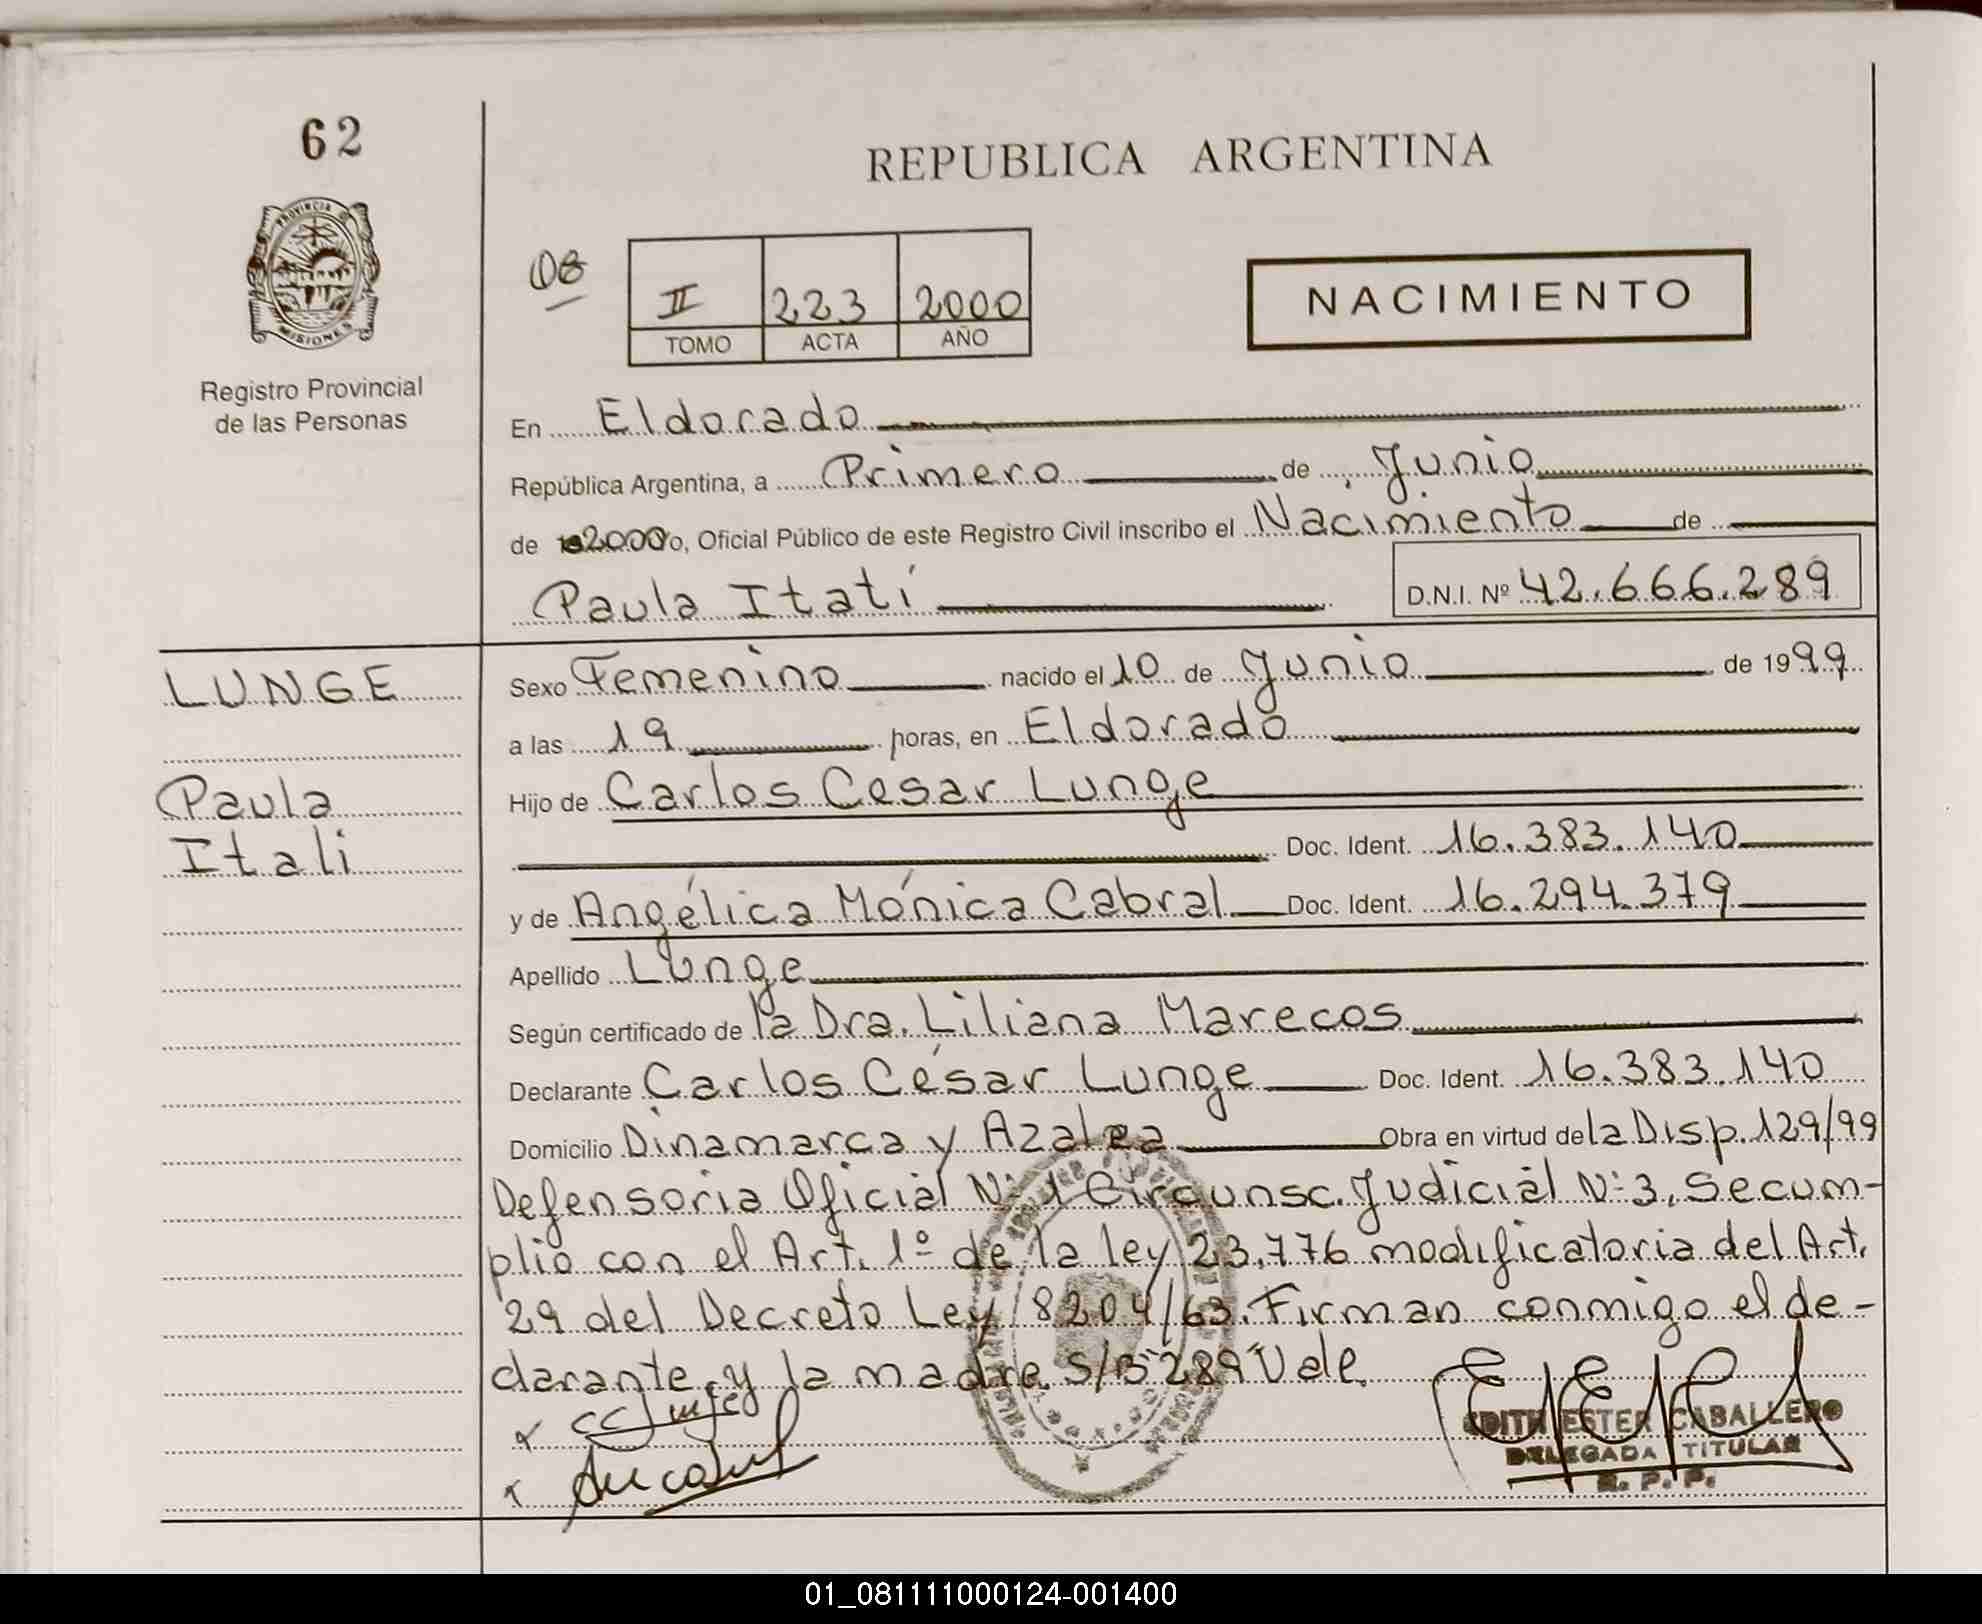 62
REPUBLICA ARGENTINA
PROVINCIA
MISIONES
Registro Provincial
de las Personas
08
II 223 2000
TOMO ACTA AÑO
NACIMIENTO
En Eldorado
República Argentina, a Primero de Junio
de 2000 o, Oficial Público de este Registro Civil inscribo el Nacimiento de
Paula Itatí D.N.I. Nº 42.666.289
LUNGE
Paula
Itali
Sexo Femenino nacido el 10 de Junio de 1999
a las 19 horas, en Eldorado
Hijo de Carlos Cesar Lunge
Doc. Ident. 16.383.140
y de Angélica Mónica Cabral Doc. Ident. 16.294.379
Apellido Lunge
Según certificado de la Dra. Liliana Marecos
Declarante Carlos César Lunge Doc. Ident. 16.383.140
Domicilio Dinamarca y Azalea Obra en virtud de la Disp. 129/99
Defensoria Oficial Nº 1 Circunsc. Judicial Nº 3, se cum-
plio con el Art. 1º de la ley 23.776 modificatoria del Art.
29 del Decreto Ley 8204/63. Firman conmigo el de-
clarante y la madre. S/B "289" Vale.
EDITH ESTER CABALLERO
DELEGADA TITULAR
R. P. P.
01_081111000124-001400